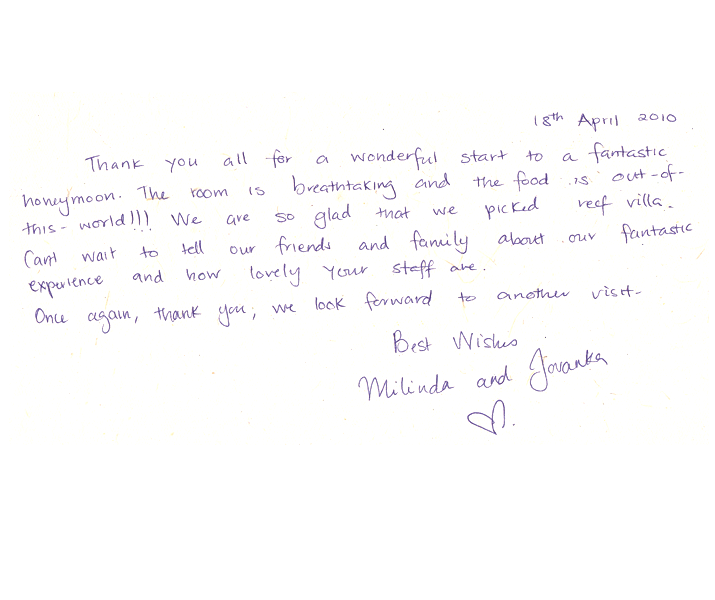 18th April 2010
Thank you all for a wonderful start to a fantastic
honeymoon. The room is breathtaking and the food is out-of-
this-world!!! We are so glad that we picked reef villa.
Can't wait to tell our friends and family about our fantastic
experience and how lovely your staff are.
Once again, thank you, we look forward to another visit.
Best Wishes
Milinda and Jovanka